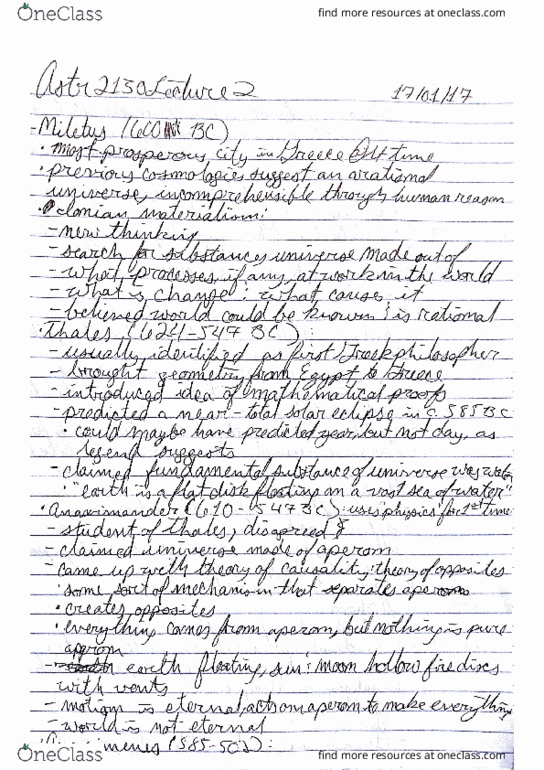 OneClass
find more resources at oneclass.com
Astr 2130 Lecture 2 17/01/17
- Miletus (600 BC)
• most prosperous city in Greece @ time
• previous cosmologies suggest an arational
universe, incomprehensible through human reason
• Ionian materialism:
- new thinking
- search for substances universe made out of
- what processes, if any, at work in the world
- what is change & what causes it
- believed world could be known & is rational
• Thales (624-547 BC):
- usually identified as first Greek philosopher
- brought geometry from Egypt to Greece
- introduced idea of mathematical proofs
- predicted a near-total solar eclipse in c. 585 BC
• could maybe have predicted year, but not day, as
legend suggests
- claimed fundamental substance of universe was water
: "earth is a flat disk floating on a vast sea of water"
• Anaximander (610-547 BC): uses physics for 1st time
- student of Thales, disagreed
- claimed universe made of aperom
- came up with theory of causality: theory of opposites
• some sort of mechanism that separates aperom
• creates opposites
• everything comes from aperom, but nothing is pure
aperom
- earth floating, sun & moon hollow fire discs
with vents
- motion is eternal, acts on aperom to make everything
- world is not eternal
menes (585-502):
OneClass
find more resources at oneclass.com